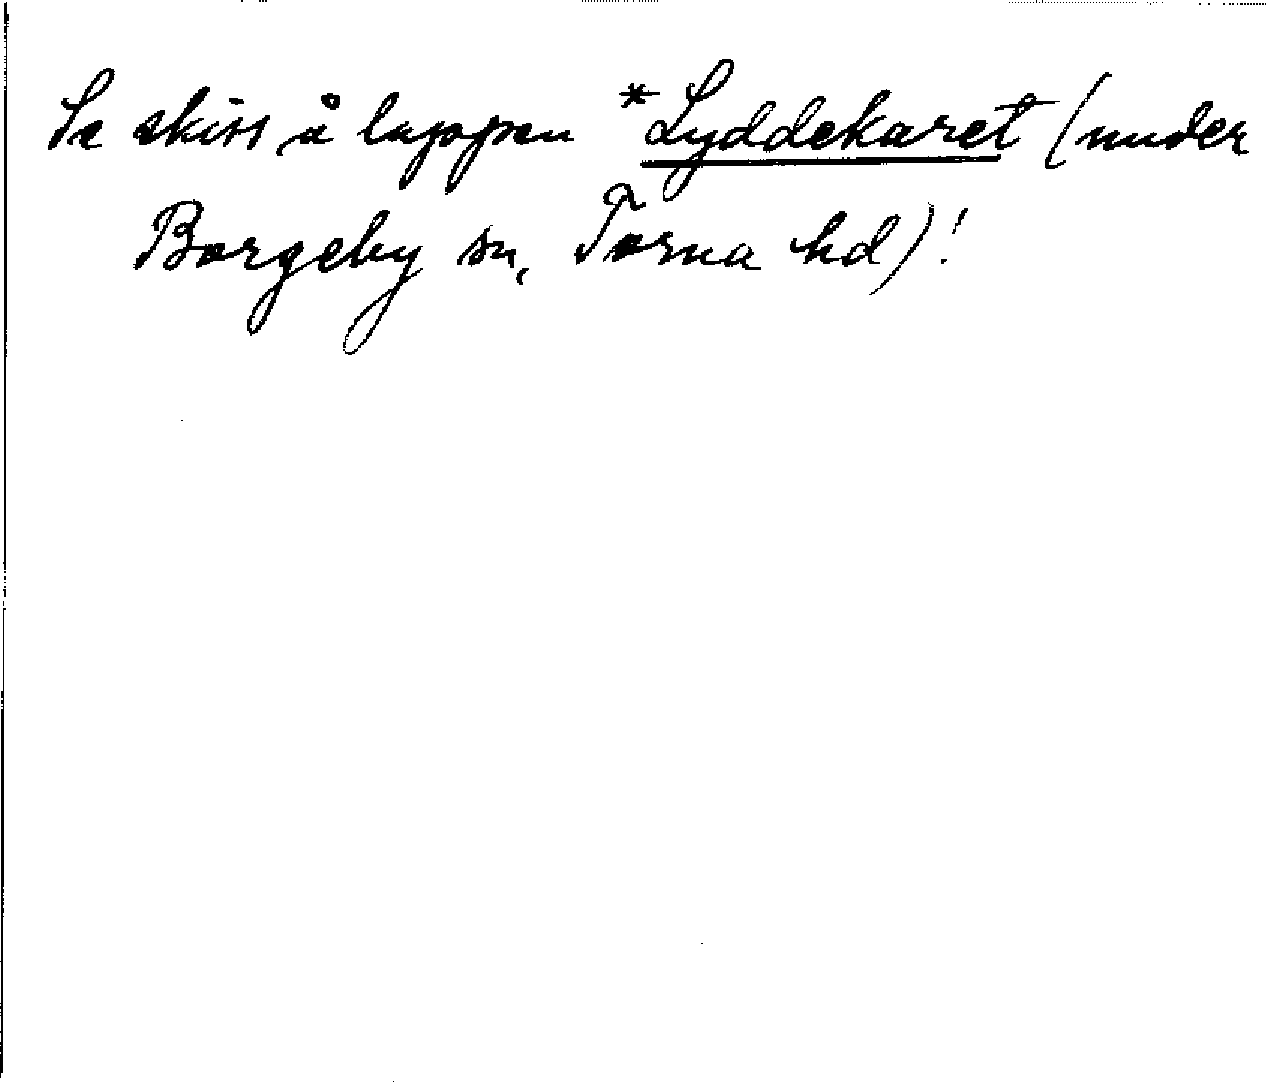 Se skiss å lappen *Lyddekaret (under
Borgeby sn, Torna hd)!